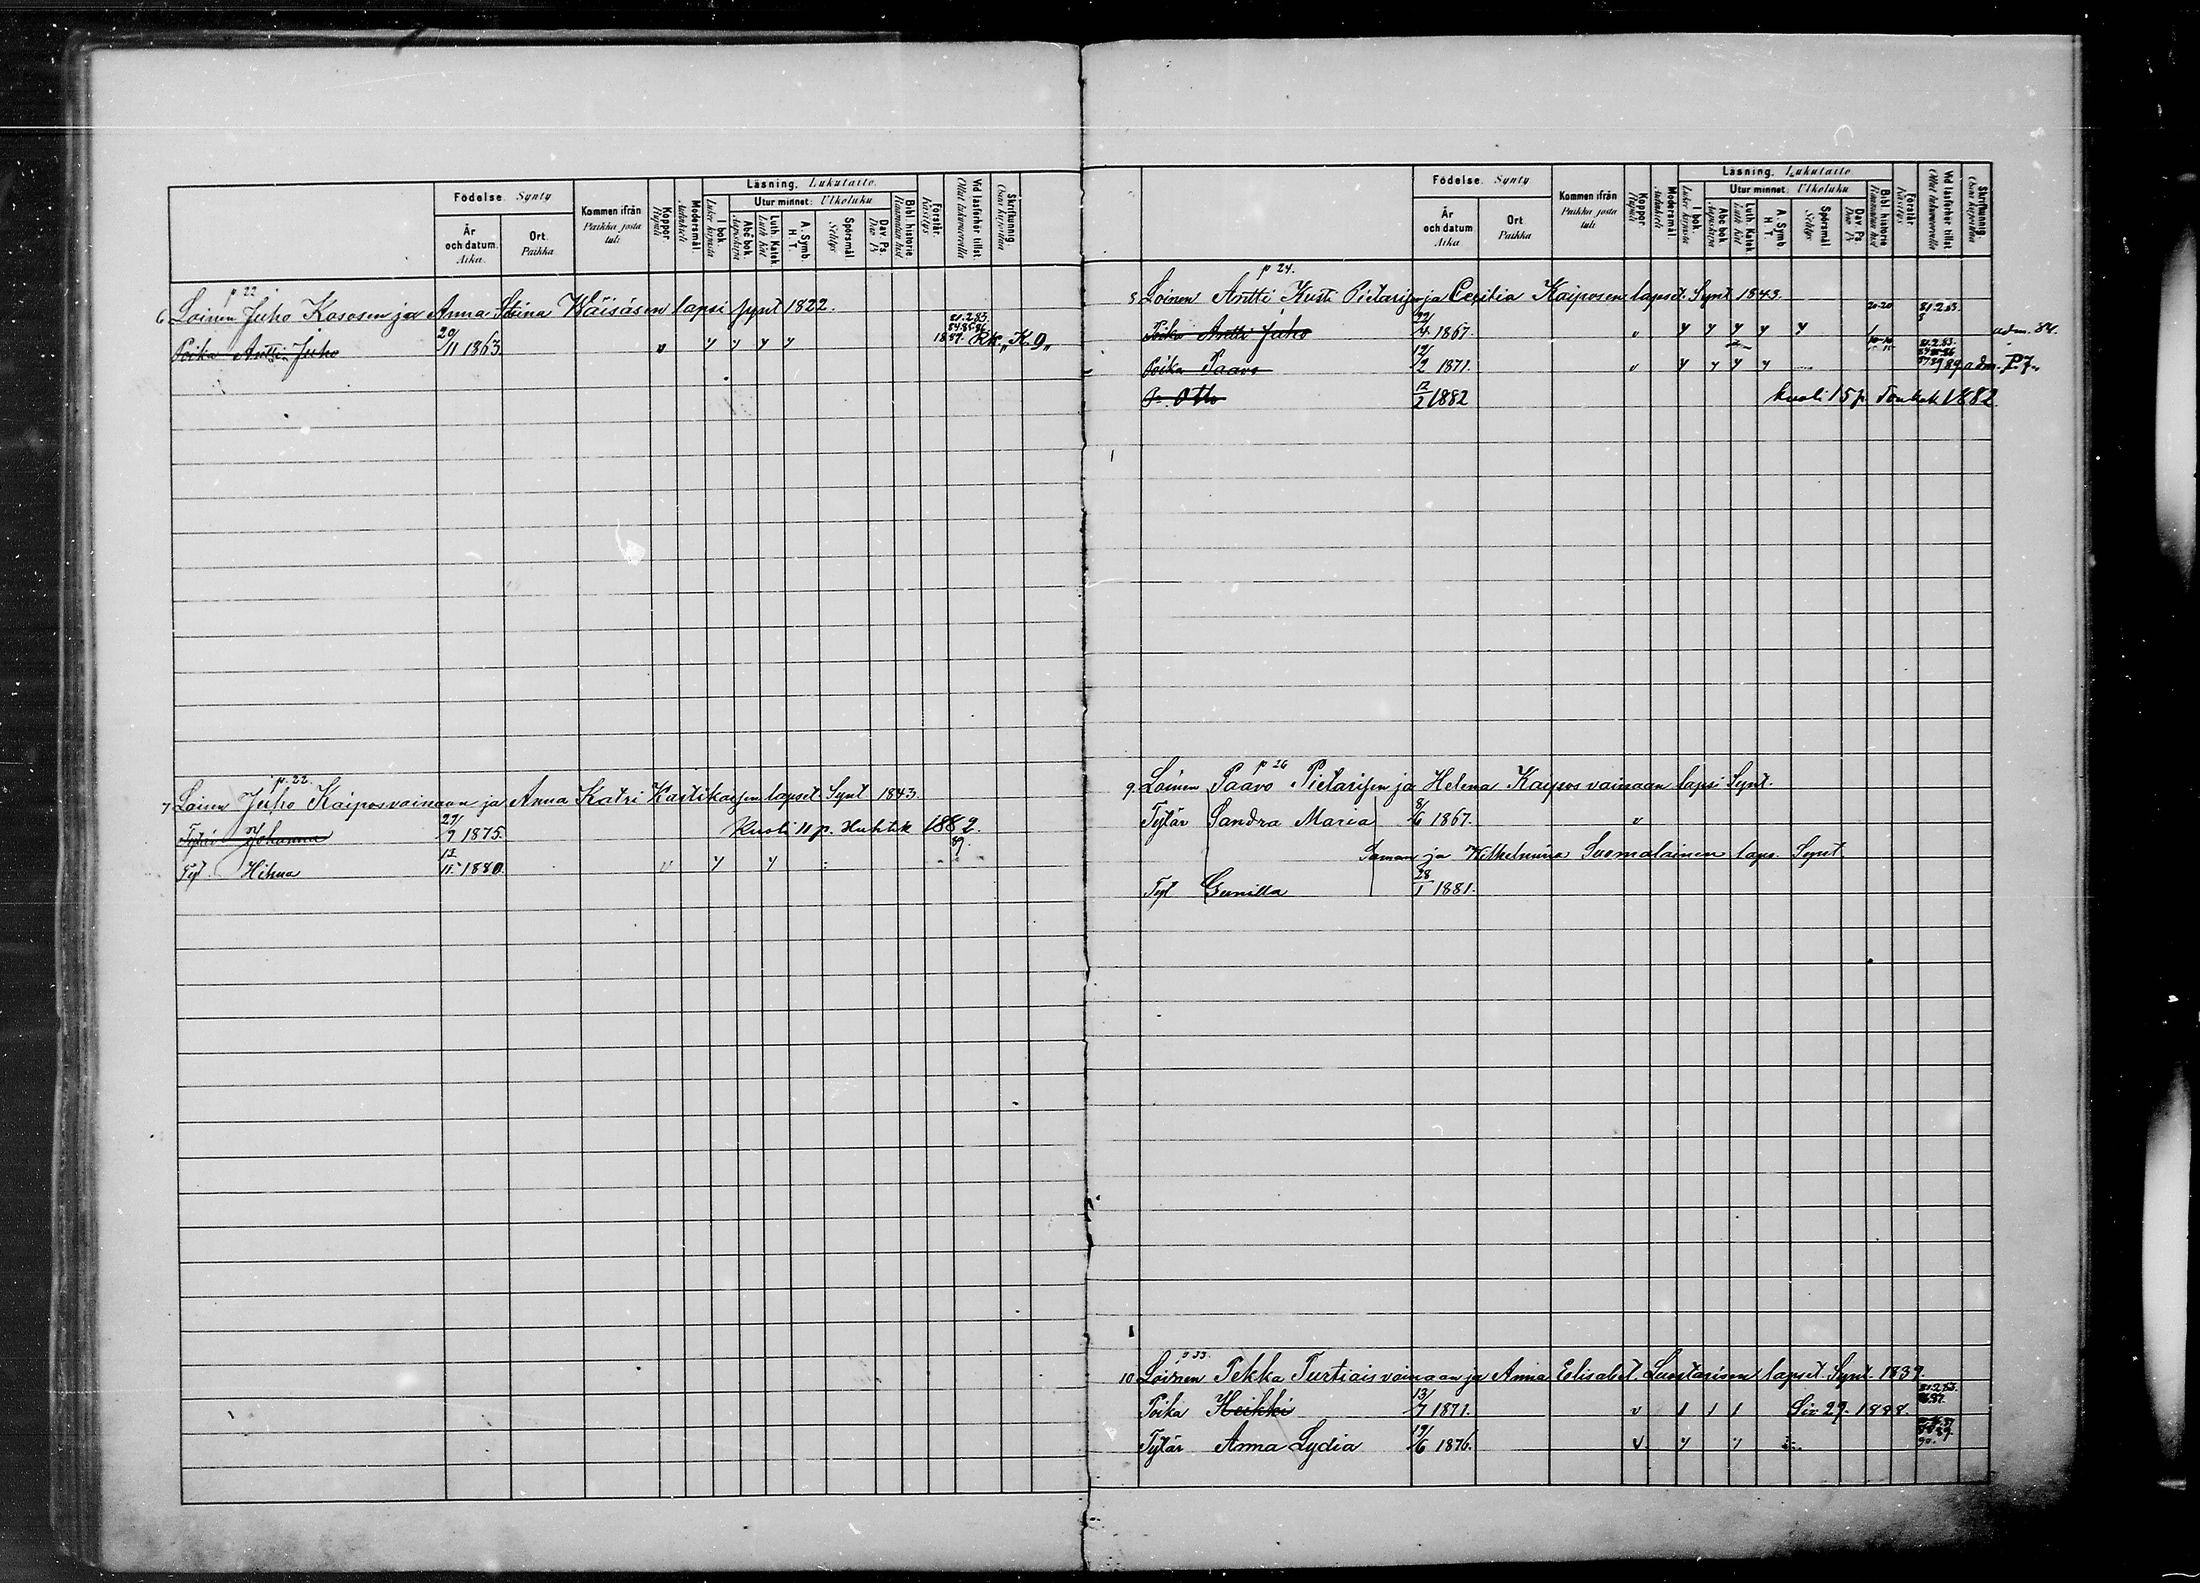 Födelse. Synty
Kommen ifrån
Paikka josta
tuli
Koppor.
Rupuli
Modersmål.
Läsning. Lukutaito.
I bok.
Lukee kirjasta
Utur minnet: Ulkoluku
Abc bok.
Aapiskirja
Luth. Katek.
Luth Kat
A. Symb.
H. T.
Spörsmål
Selitys
Dav. Ps.
Dav Ps
Bibl historie.
Förstår.
Käsitys
Vid läsförhör tillst.
Ollut lukuvuorolla
Skriftkunnig.
Osaa kirjoittaa
År
och datum.
Aika.
Ort.
Paikka
p 22
6 Loinen Juho Kososen ja Anna Stina Wäisäsen lapsi synt 1822.
Poika Antti Juho 20/11 1863. v y y y y 81.2.83. 84.85.86. 1887. Rk. "K. 9"
p. 22.
7 Loinen Juho Kaiposvainaan ja Anna Katri Kastikaisen lapset. Synt 1843.
Tytär Johanna 29/9 1875. Kuoli 11 p. Huhtik 1882.
Tyt Hilma 1880. v y y 89.
Födelse. Synty
Kommen ifrån
Paikka josta
tuli
Koppor
Rupuli
Modersmål.
Läsning. Lukutaito
I bok.
Lukee kirjasta
Utur minnet: Ulkoluku
Abc bok
Aapiskirja
Luth. Katek.
Luth Kat
A. Symb.
H. T.
Spörsmål
Selitys
Dav Ps.
Dav Ps
Bibl historie
Förstår.
Käsitys
Vid läsförhör tillst.
Ollut lukuvuorolla
Skriftkunnig.
Osaa kirjoittaa
År
och datum
Aika
Ort
Paikka
p 24.
8 Loinen Antti Kusti Pietarisen ja Cecilia Kaiposen lapset. Synt 1843.
Poika Antti Juho 1867. v y y y y y 20-20 81.2.83. adm. 84.
Poika Paavo 19/2 1871. v y y y y 10-10 81.2.83. 89 adm. P.7.
P. Otto 12/2 1882 kuoli 15 p. Toukok 1882
p 26
9 Loinen Paavo Pietarisen ja Helena Kaipos vainaan lapsi Synt.
Tytär Sandra Maria 8/6 1867. v
Saman ja Wilhelmiina Suomalainen laps. Synt
Tyt Gunilla 28/1 1881.
p 33.
10 Loinen Pekka Turtiais vainaan ja Anna Elisabet Luostarisen lapset. Synt. 1839.
Poika Heikki 13/7 1871. v 1 1 1 Siv 29. 1888. 81.2.83.
Tytär Anna Lydia 19/6 1876. v y y 90.